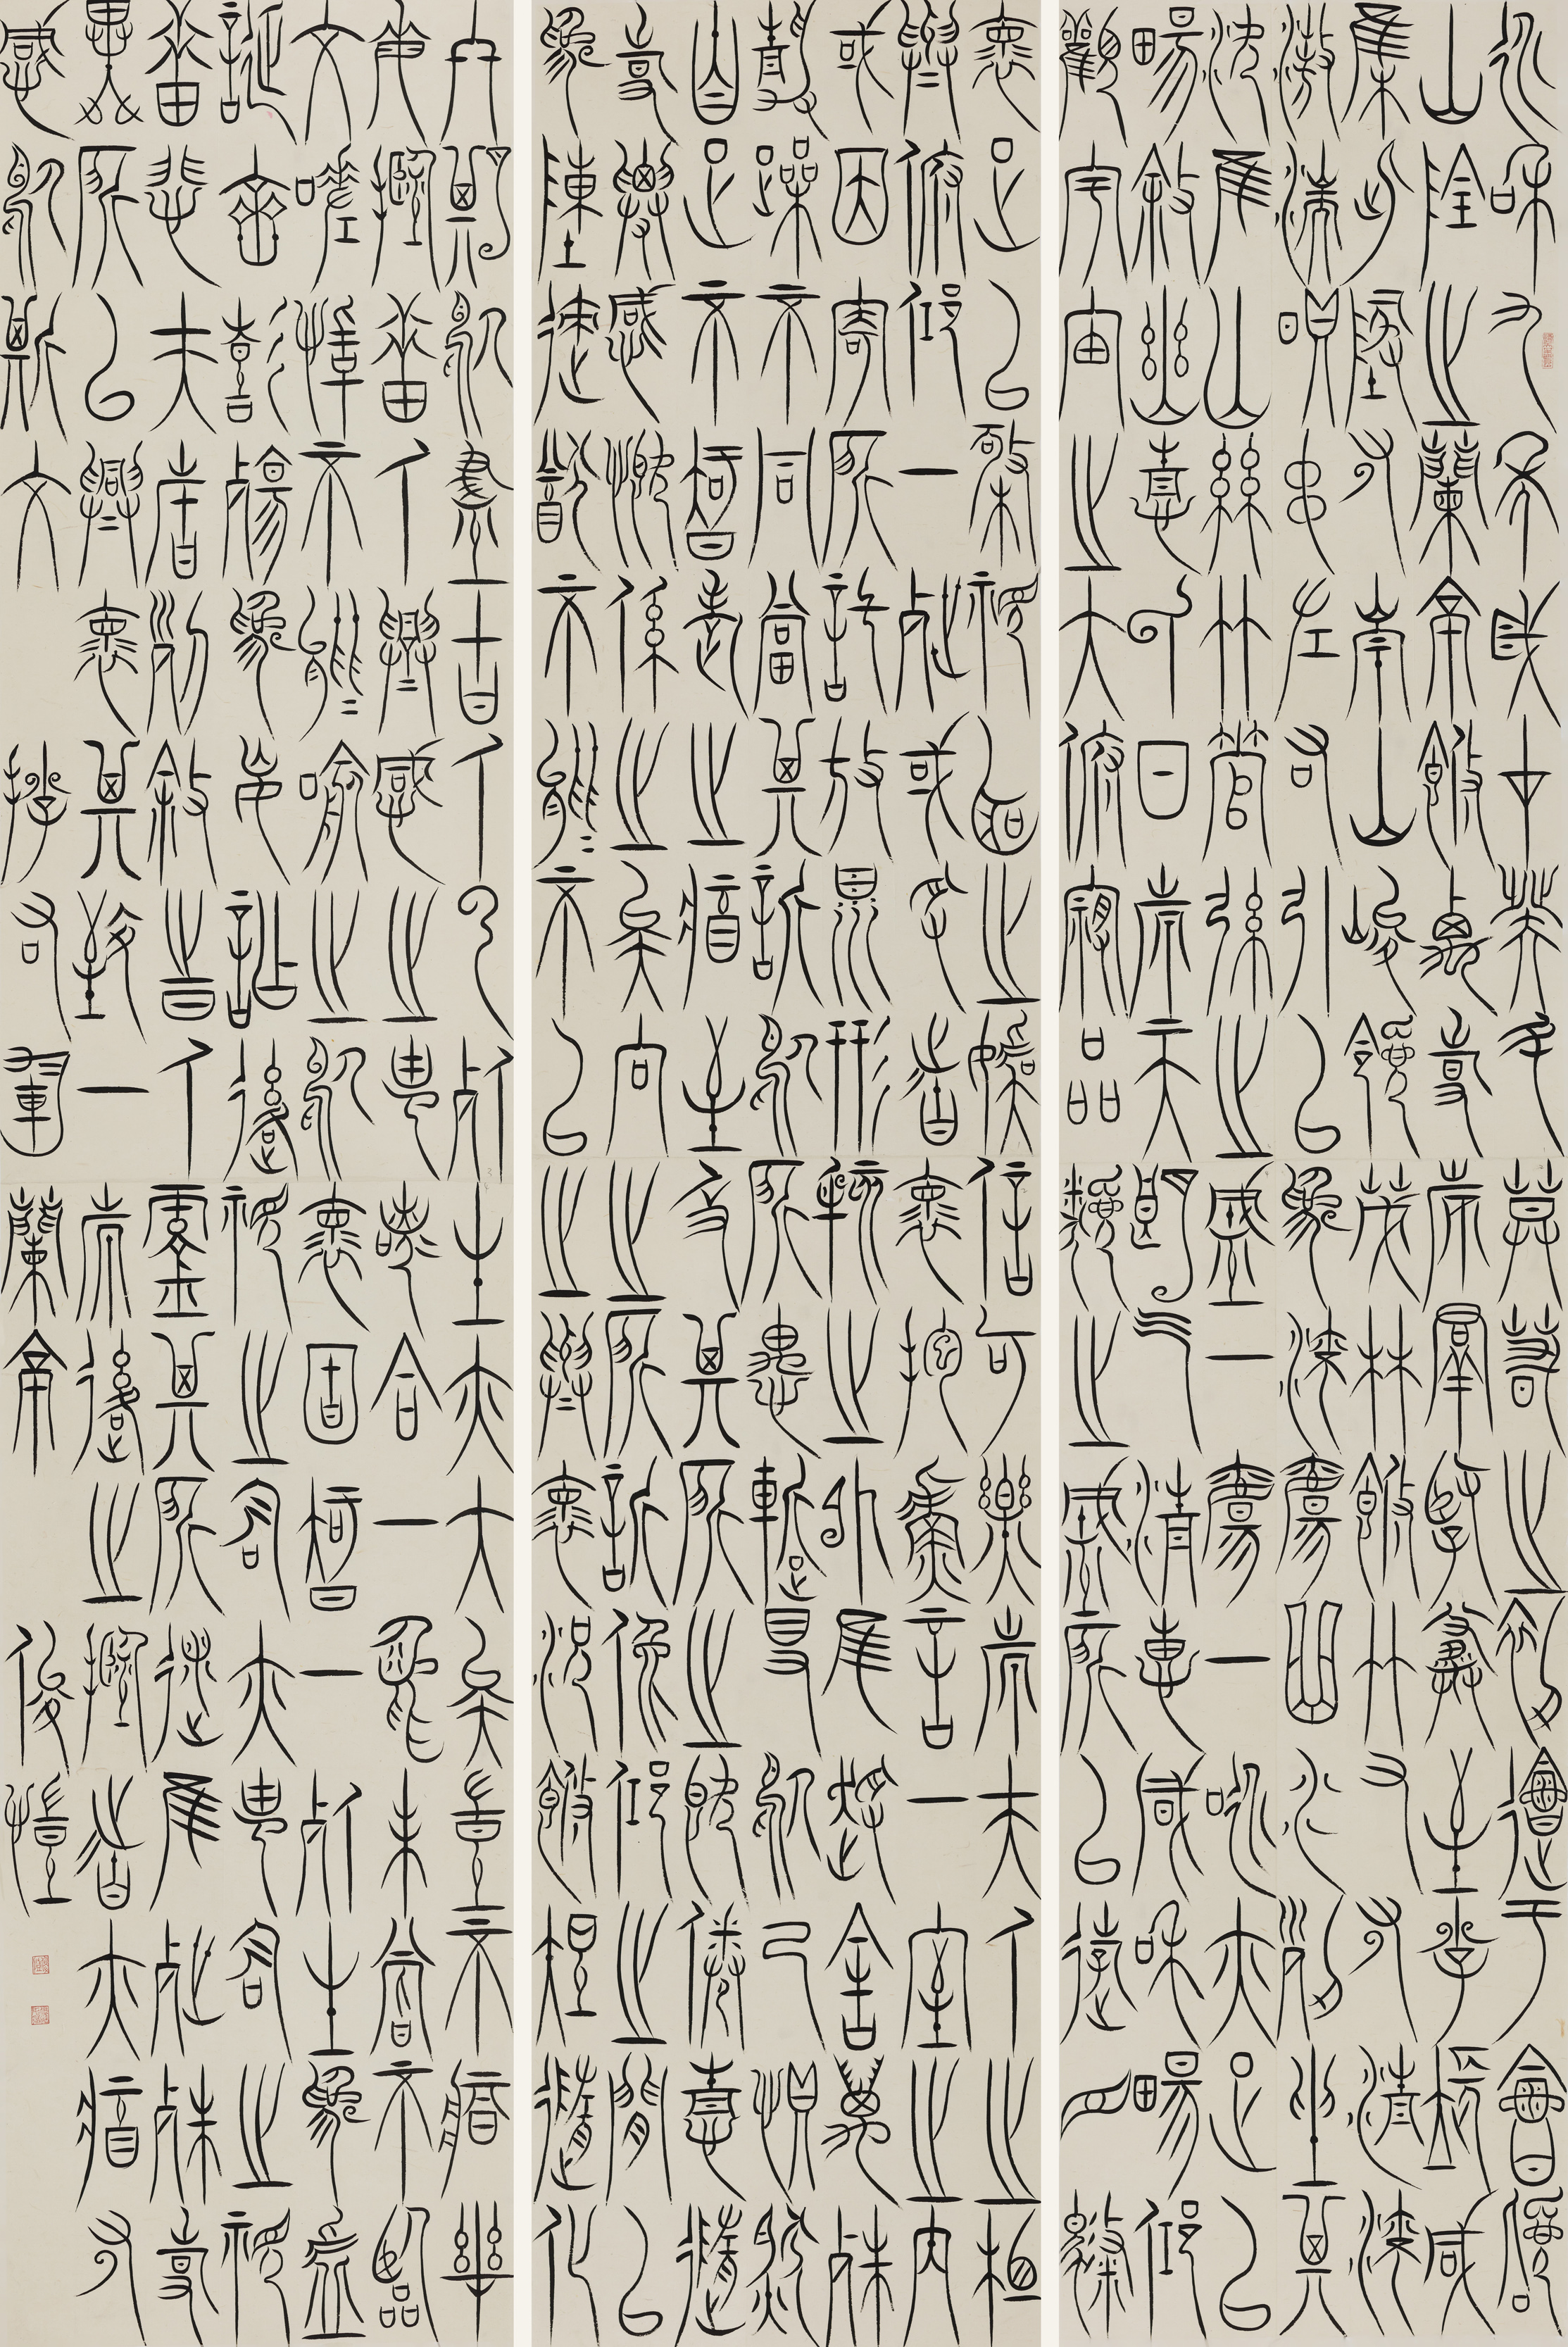 永和九年歲在癸丑莫春之初會于會稽
山陰之蘭亭脩禊事也羣賢畢至少長咸
集此地有崇山峻領茂林脩竹又有清流
激湍映帶左右引以為流觴曲水列坐其
次雖無絲竹管弦之盛一觴一詠亦足以
暢敘幽情是日也天朗氣清惠風和暢仰
觀宇宙之大俯察品類之盛所以遊目騁
懷足以極視聽之娛信可樂也夫人之相
與俯仰一世或取諸懷抱悟言一室之內
或因寄所託放浪形骸之外雖趣舍萬殊
靜躁不同當其欣於所遇蹔得於己快然
自足不知老之將至及其所之既倦情隨
事遷感慨係之矣向之所欣俛仰之間以
為陳迹猶不能不以之興懷況脩短隨化
終期於盡古人云死生亦大矣豈不痛哉
每攬昔人興感之由若合一契未嘗不臨
文嗟悼不能喻之於懷固知一死生為虛
誕齊彭殤為妄作後之視今亦由今之視
昔悲夫故列敘時人錄其所述雖世殊事
異所以興懷其致一也後之攬者亦將有
感於斯文 右軍蘭亭 俊愷